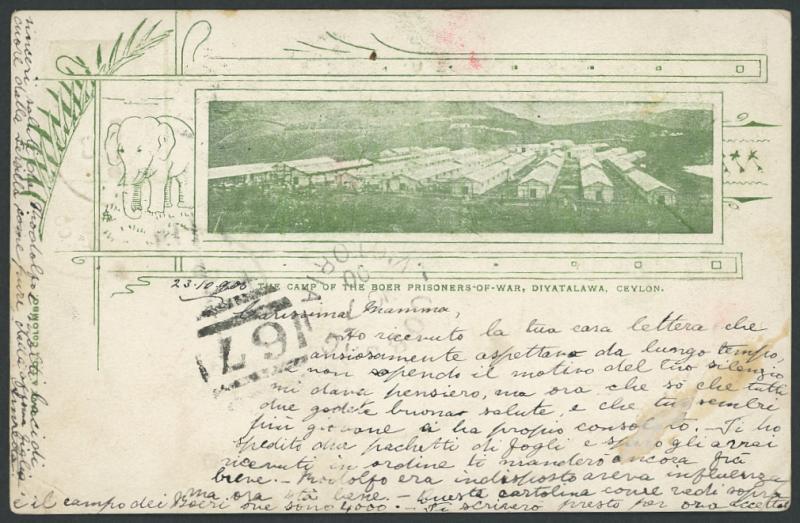 THE CAMP OF THE BOER PRISONERS-OF-WAR, DIYATALAWA, CEYLON.
23.10.900
Carissima Mamma,
Ho ricevuto la tua cara lettera che
ansiosamente aspettavo da lungo tempo,
non sapendo il motivo del tuo silenzio
mi dava pensiero, ma ora che so che tutti
due godete buona salute, e che tu sembri
più giovane ci ha proprio consolato. - Ti ho
spedito due pachetti di fogli e spero gli avrai
ricevuti in ordine ti manderò ancora fra
breve. - Rodolfo era indisposto aveva influenza
ma ora sta bene. - Questa cartolina come vedi sopra
è il campo dei Boeri che sono 4000. - Ti scriverò presto per ora accetta
sinceri saluti dal Rodolfo e baci di
cuore dalla come pure dalla figlia
VICTORIA
167
COLOMBO